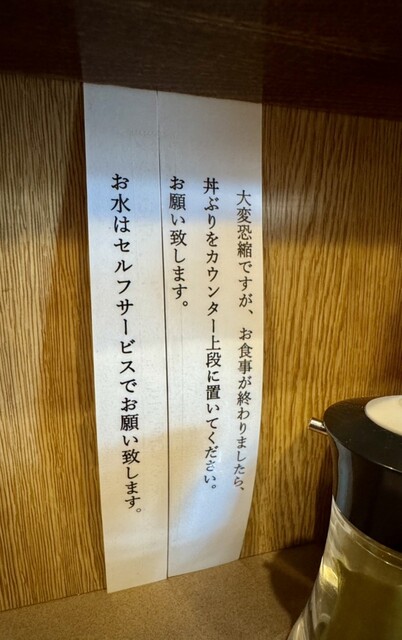 大変恐縮ですが、お食事が終わりましたら、
丼ぶりをカウンター上段に置いてください。
お願い致します。
お水はセルフサービスでお願い致します。